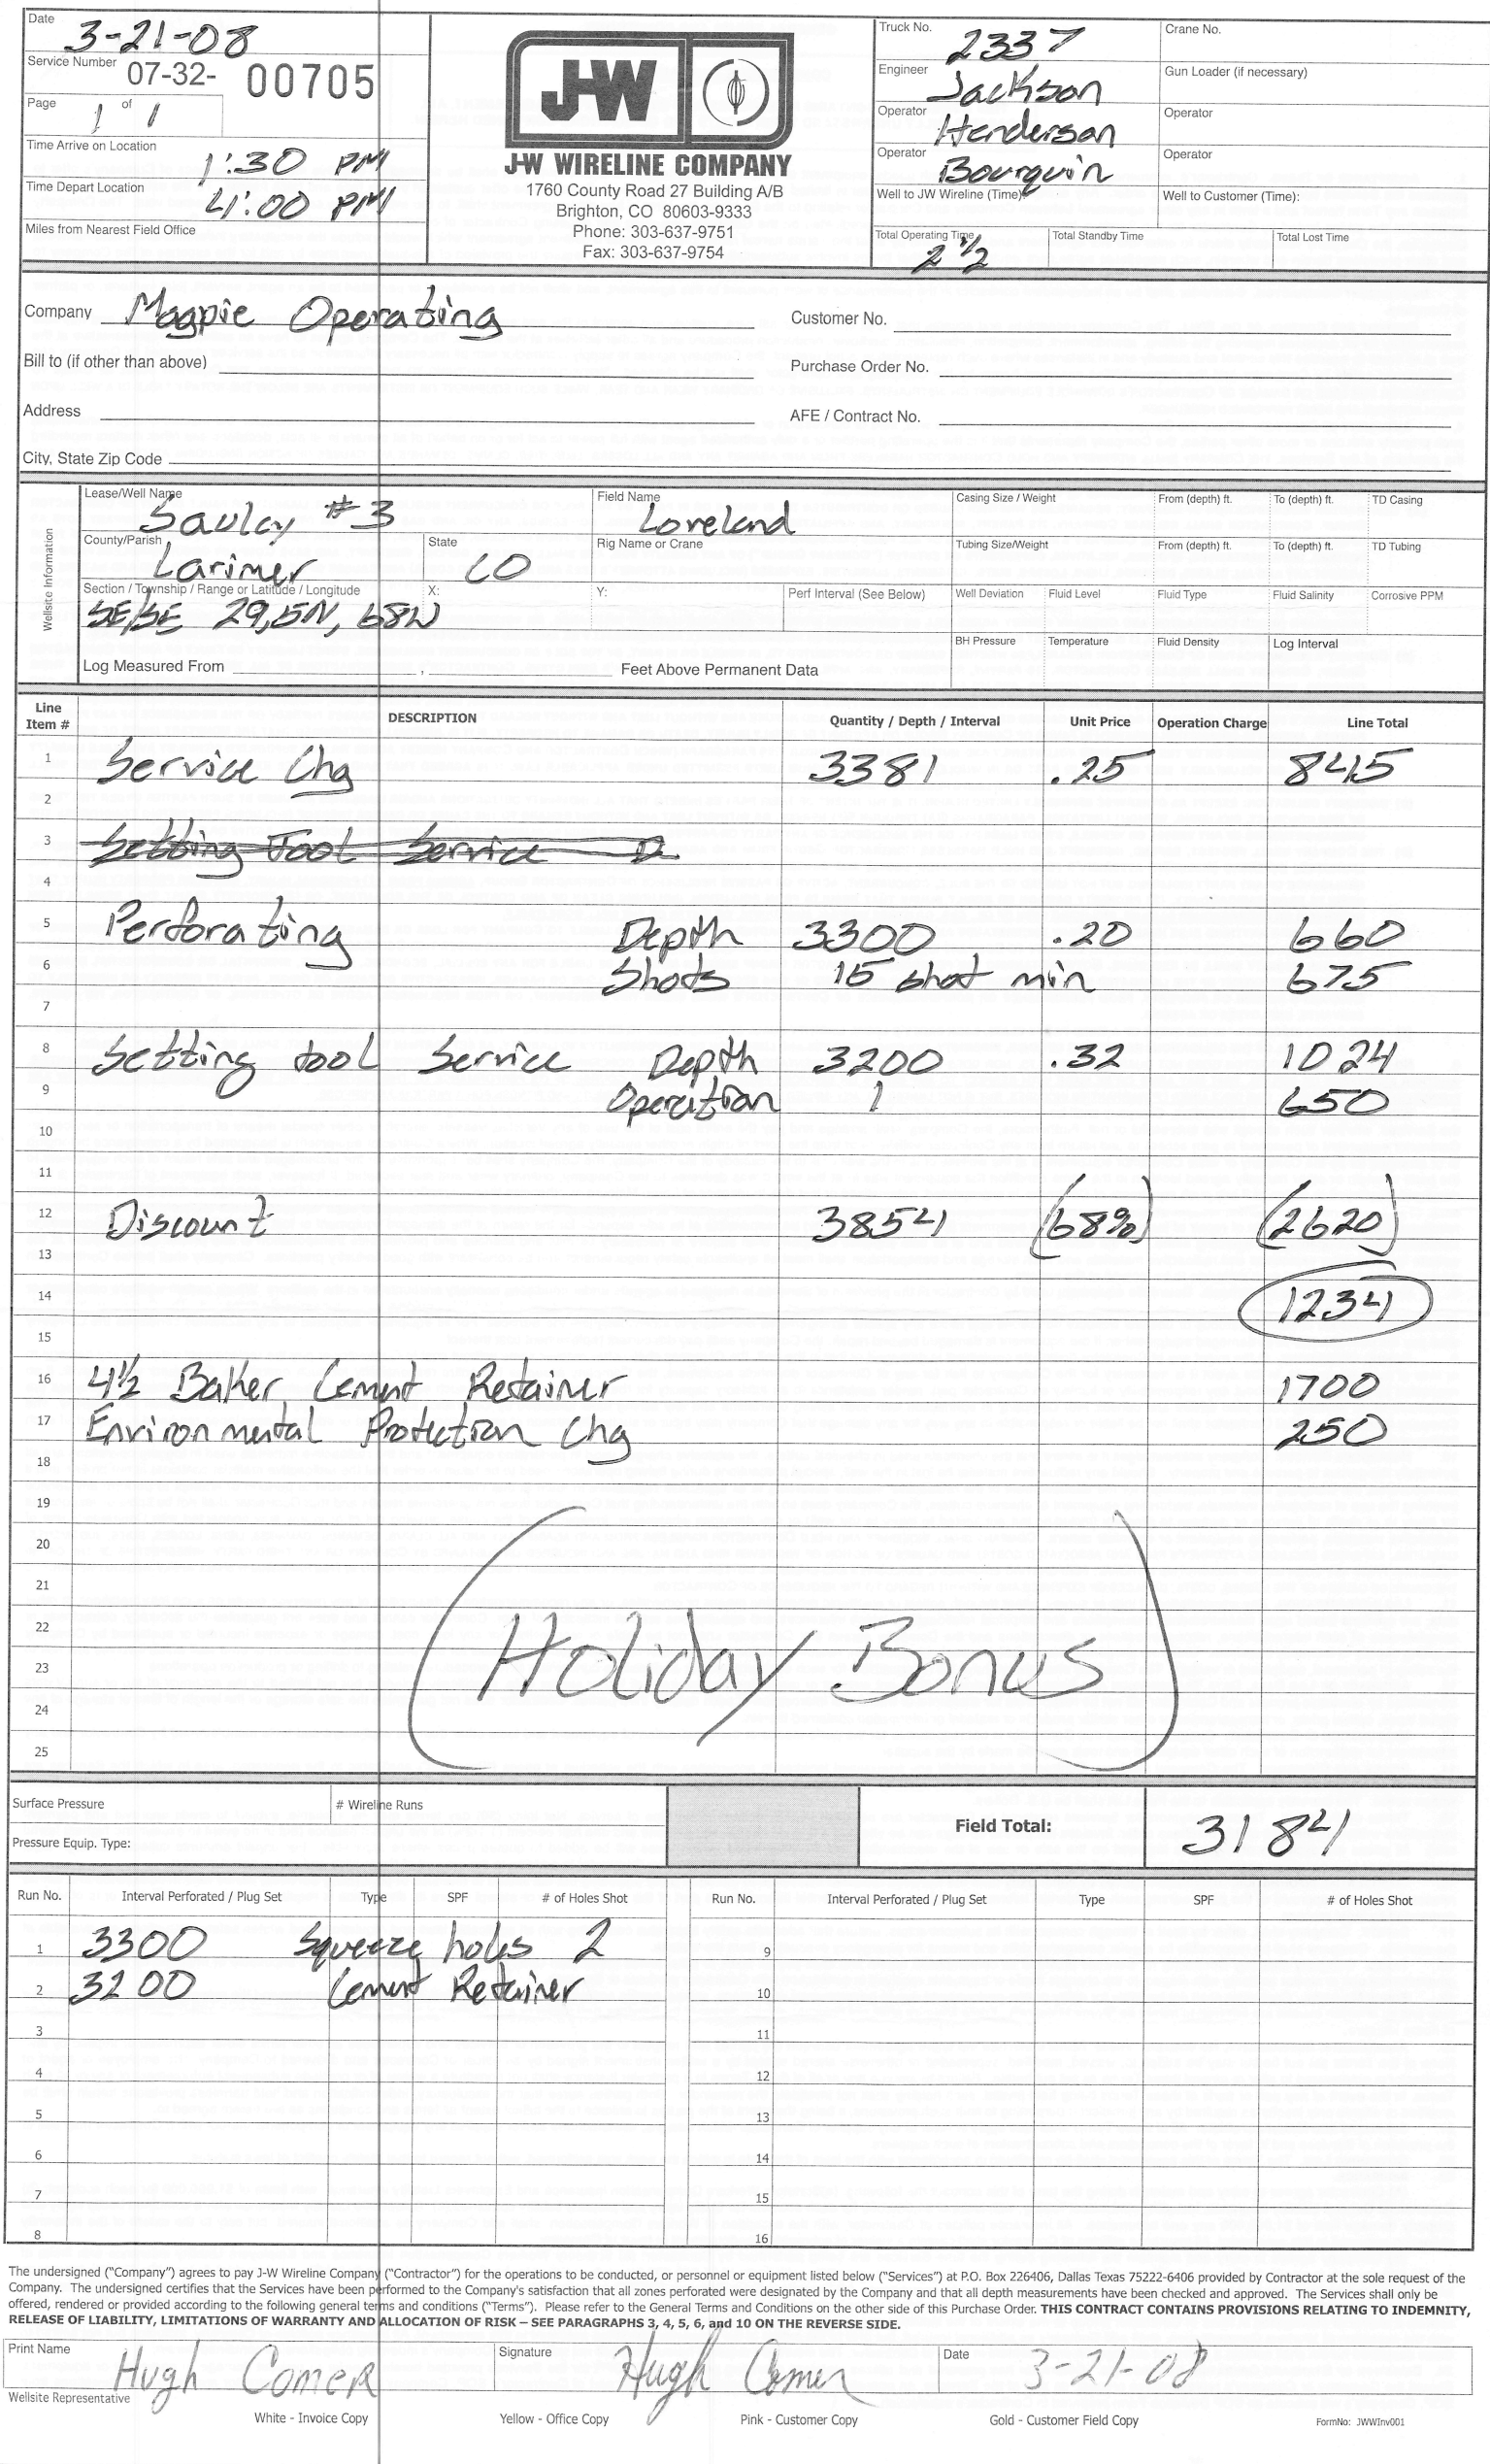 Date 3-21-08
Service Number 07-32- 00705
Page 1 of 1
Time Arrive on Location 1:30 PM
Time Depart Location 4:00 PM
Miles from Nearest Field Office
J-W
J-W WIRELINE COMPANY
1760 County Road 27 Building A/B
Brighton, CO 80603-9333
Phone: 303-637-9751
Fax: 303-637-9754
Truck No. 2337 Crane No.
Engineer Jackson Gun Loader (if necessary)
Operator Henderson Operator
Operator Bourquin Operator
Well to JW Wireline (Time): Well to Customer (Time):
Total Operating Time 2 1/2 Total Standby Time Total Lost Time
Company Magpie Operating Customer No.
Bill to (if other than above) Purchase Order No.
Address AFE / Contract No.
City, State Zip Code
Wellsite Information
Lease/Well Name Saulcy #3 Field Name Loveland Casing Size / Weight From (depth) ft. To (depth) ft. TD Casing
County/Parish Larimer State CO Rig Name or Crane Tubing Size/Weight From (depth) ft. To (depth) ft. TD Tubing
Section / Township / Range or Latitude / Longitude SE/SE 29, 5N, 68W X: Y: Perf Interval (See Below) Well Deviation Fluid Level Fluid Type Fluid Salinity Corrosive PPM
BH Pressure Temperature Fluid Density Log Interval
Log Measured From , Feet Above Permanent Data
Line Item # DESCRIPTION Quantity / Depth / Interval Unit Price Operation Charge Line Total
1 Service Chg 3381 .25 845
2
3 Setting Tool Service D
4
5 Perforating Depth 3300 .20 660
6 Shots 15 shot min 675
7
8 Setting tool Service Depth 3200 .32 1024
9 Operation 1 650
10
11
12 Discount 3854 (68%) (2620)
13
14 1234
15
16 4½ Baker Cement Retainer 1700
17 Environmental Protection Chg 250
18
19
20
21
22
23 (Holiday Bonus)
24
25
Surface Pressure # Wireline Runs
Field Total: 3184
Pressure Equip. Type:
Run No. Interval Perforated / Plug Set Type SPF # of Holes Shot Run No. Interval Perforated / Plug Set Type SPF # of Holes Shot
1 3300 Squeeze holes 2 9
2 3200 Cement Retainer 10
3 11
4 12
5 13
6 14
7 15
8 16
The undersigned ("Company") agrees to pay J-W Wireline Company ("Contractor") for the operations to be conducted, or personnel or equipment listed below ("Services") at P.O. Box 226406, Dallas Texas 75222-6406 provided by Contractor at the sole request of the
Company. The undersigned certifies that the Services have been performed to the Company's satisfaction that all zones perforated were designated by the Company and that all depth measurements have been checked and approved. The Services shall only be
offered, rendered or provided according to the following general terms and conditions ("Terms"). Please refer to the General Terms and Conditions on the other side of this Purchase Order. THIS CONTRACT CONTAINS PROVISIONS RELATING TO INDEMNITY,
RELEASE OF LIABILITY, LIMITATIONS OF WARRANTY AND ALLOCATION OF RISK – SEE PARAGRAPHS 3, 4, 5, 6, and 10 ON THE REVERSE SIDE.
Print Name Hugh Comer Signature Hugh Comer Date 3-21-08
Wellsite Representative
White - Invoice Copy Yellow - Office Copy Pink - Customer Copy Gold - Customer Field Copy FormNo: JWWInv001